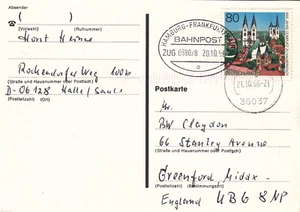 Absender
(Vorwahl) (Rufnummer)
Horst
Rockendorfer Weg 100b
(Straße und Hausnummer oder Postfach)
D-06128 Halle/Saale
(Postleitzahl) (Ort)
HAMBURG-FRANKFURT
BAHNPOST
ZUG
20.10.96
a
80
21.10.96-21
Postkarte
Mr.
Claydon
66 Stanley Avenue
(Straße und Hausnummer oder Postfach)
Greenford, Middx.
(Postleitzahl) (Bestimmungsort)
England UB6 8NP